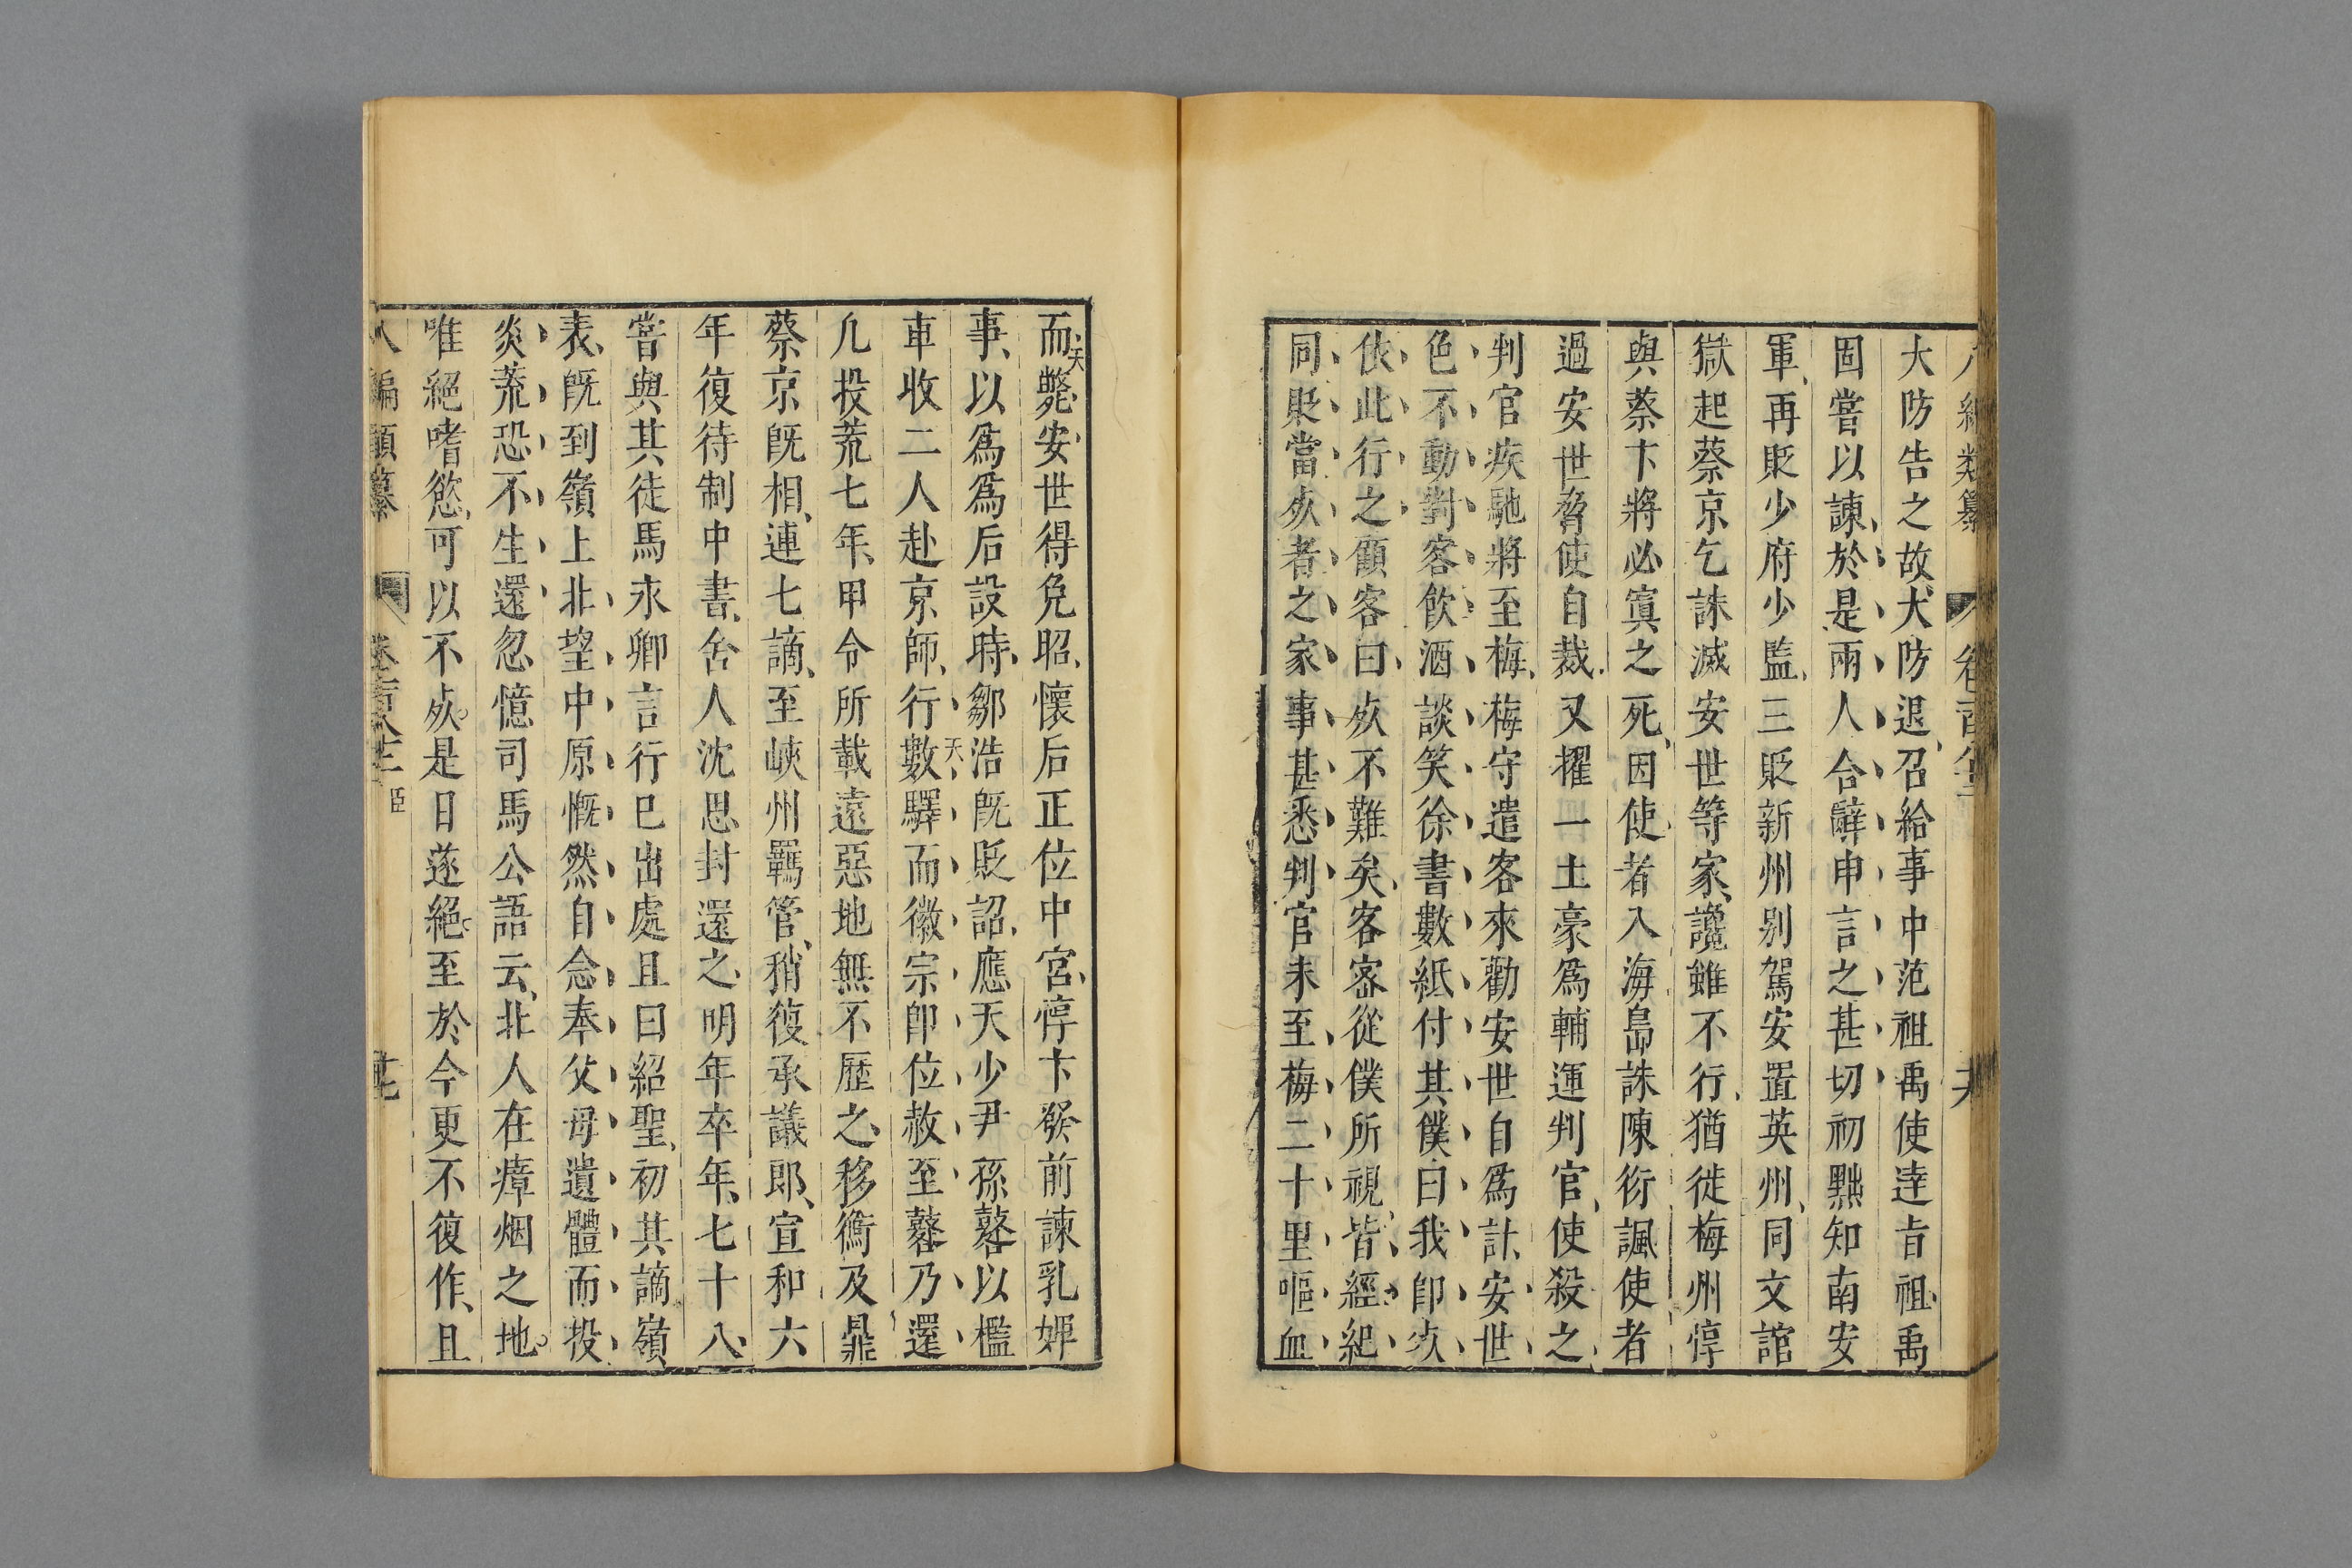 大防告之故、大防退、召給事中范祖禹使達旨祖禹
固嘗以諫、於是兩人合辭申言之甚切初黜知南安
軍、再貶少府少監、三貶新州别駕安置英州、同文館
獄起蔡京乞誅滅安世等家、讒雖不行、猶徙梅州惇
與蔡卞將必寘之死、因使者入海島誅陳衍諷使者
過安世脅使自裁、又擢一土豪爲輔運判官、使殺之
判官疾馳將至梅、梅守遣客來勸安世自爲計、安世
色不動對客飲酒談笑徐書數紙付其僕曰我卽死
依此行之顧客曰、死不難矣、客密從僕所視、皆經紀
同貶當死者之家事甚悉判官未至梅二十里嘔血
而斃、安世得免昭懷后正位中宮、惇卞發前諫乳婢
天
事、以爲爲后設時、鄒浩旣貶詔、應天少尹孫鼛以檻
車收二人赴京師、行數驛而徽宗卽位赦至鼛乃還
天
凡投荒七年、甲令所載遠惡地無不歷之、移衡及鼎
蔡京旣相、連七謫、至峽州羈管、稍復承議郎、宣和六
年復待制中書、舍人沈思封還之、明年卒年、七十八、
嘗與其徒馬永卿言行已出處且曰紹聖初其謫嶺
表、旣到嶺上北望中原慨然自念奉父母遺體而投
炎荒恐不生還忽憶司馬公語云、北人在瘴烟之地
唯絕嗜慾、可以不死是日遂絕至於今更不復作、且
八編類纂